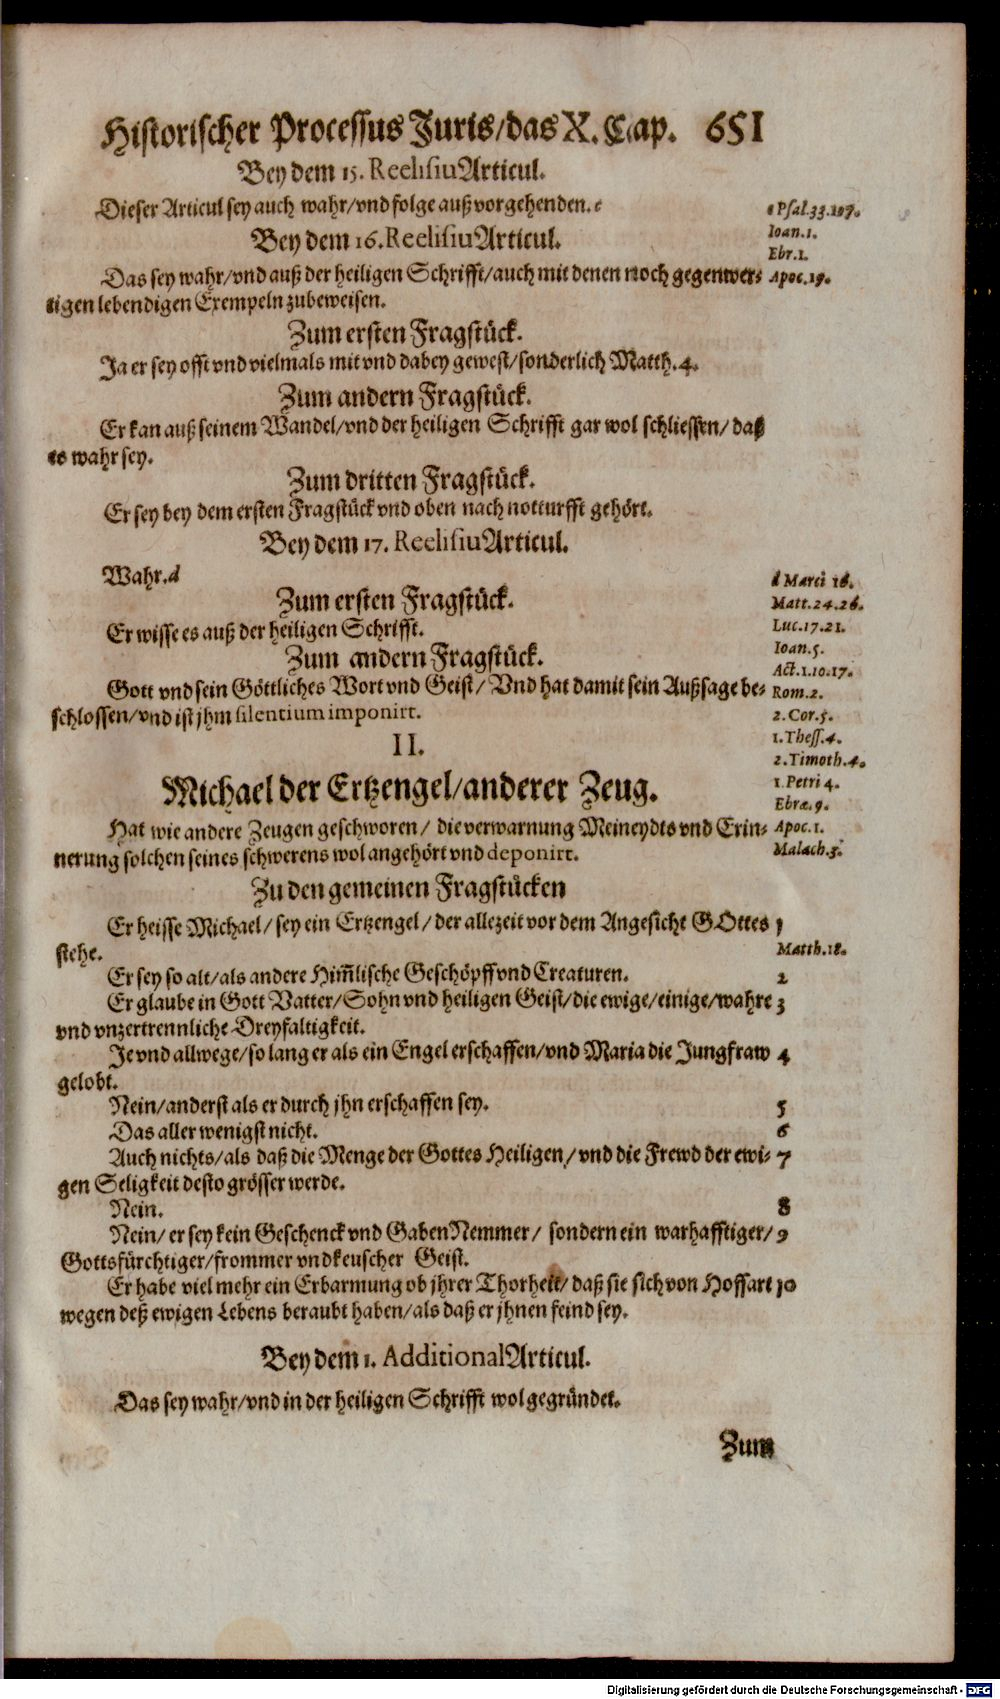 Historischer Processus Juris/das X. Cap. 651
Bey dem 15. ReelisiuArticul.
Dieser Articul sey auch wahr/vnd folge auß vorgehenden. c
c Psal.33.107.
Bey dem 16. ReelisiuArticul.
Ioan.1.
Ebr.1.
Das sey wahr/vnd auß der heiligen Schrifft/auch mit denen noch gegenwer-
Apoc.19.
tigen lebendigen Exempeln zubeweisen.
Zum ersten Fragstück.
Ja er sey offt vnd vielmals mit vnd dabey gewest/sonderlich Matth.4.
Zum andern Fragstück.
Er kan auß seinem Wandel/vnd der heiligen Schrifft gar wol schliessen/daß
es wahr sey.
Zum dritten Fragstück.
Er sey bey dem ersten Fragstück vnd oben nach notturfft gehört.
Bey dem 17. ReelisiuArticul.
Wahr.d
d Marci 16.
Matt.24.26.
Luc.17.21.
Ioan.5.
Act.1.10.17.
Rom.2.
2.Cor.5.
1.Thess.4.
2.Timoth.4.
1.Petri 4.
Ebræ.9.
Apoc.1.
Malach.3.
Zum ersten Fragstück.
Er wisse es auß der heiligen Schrifft.
Zum andern Fragstück.
Gott vnd sein Göttliches Wort vnd Geist/ Vnd hat damit sein Außsage be-
schlossen/vnd ist jhm silentium imponirt.
II.
Michael der Ertzengel/anderer Zeug.
Hat wie andere Zeugen geschworen/ die verwarnung Meineydts vnd Erin-
nerung solchen seines schwerens wol angehört vnd deponirt.
Zu den gemeinen Fragstücken
Er heisse Michael/ sey ein Ertzengel/ der allezeit vor dem Angesicht GOttes 1
stehe.
Matth.18.
Er sey so alt/als andere Him̃lische Geschöpff vnd Creaturen. 2
Er glaube in Gott Vatter/Sohn vnd heiligen Geist/die ewige/einige/wahre 3
vnd vnzertrennliche Dreyfaltigkeit.
Je vnd allwege/so lang er als ein Engel erschaffen/vnd Maria die Jungfraw 4
gelobt.
Nein/anderst als er durch jhn erschaffen sey. 5
Das aller wenigst nicht. 6
Auch nichts/als daß die Menge der Gottes Heiligen/vnd die Frewd der ewi- 7
gen Seligkeit desto grösser werde.
Nein. 8
Nein/ er sey kein Geschenck vnd GabenNemmer/ sondern ein warhafftiger/ 9
Gottsfürchtiger/frommer vnd keuscher Geist.
Er habe viel mehr ein Erbarmung ob jhrer Thorheit/ daß sie sich von Hoffart 10
wegen deß ewigen Lebens beraubt haben/als daß er jhnen feind sey.
Bey dem 1. AdditionalArticul.
Das sey wahr/vnd in der heiligen Schrifft wol gegründet.
Zum
Digitalisierung gefördert durch die Deutsche Forschungsgemeinschaft - DFG